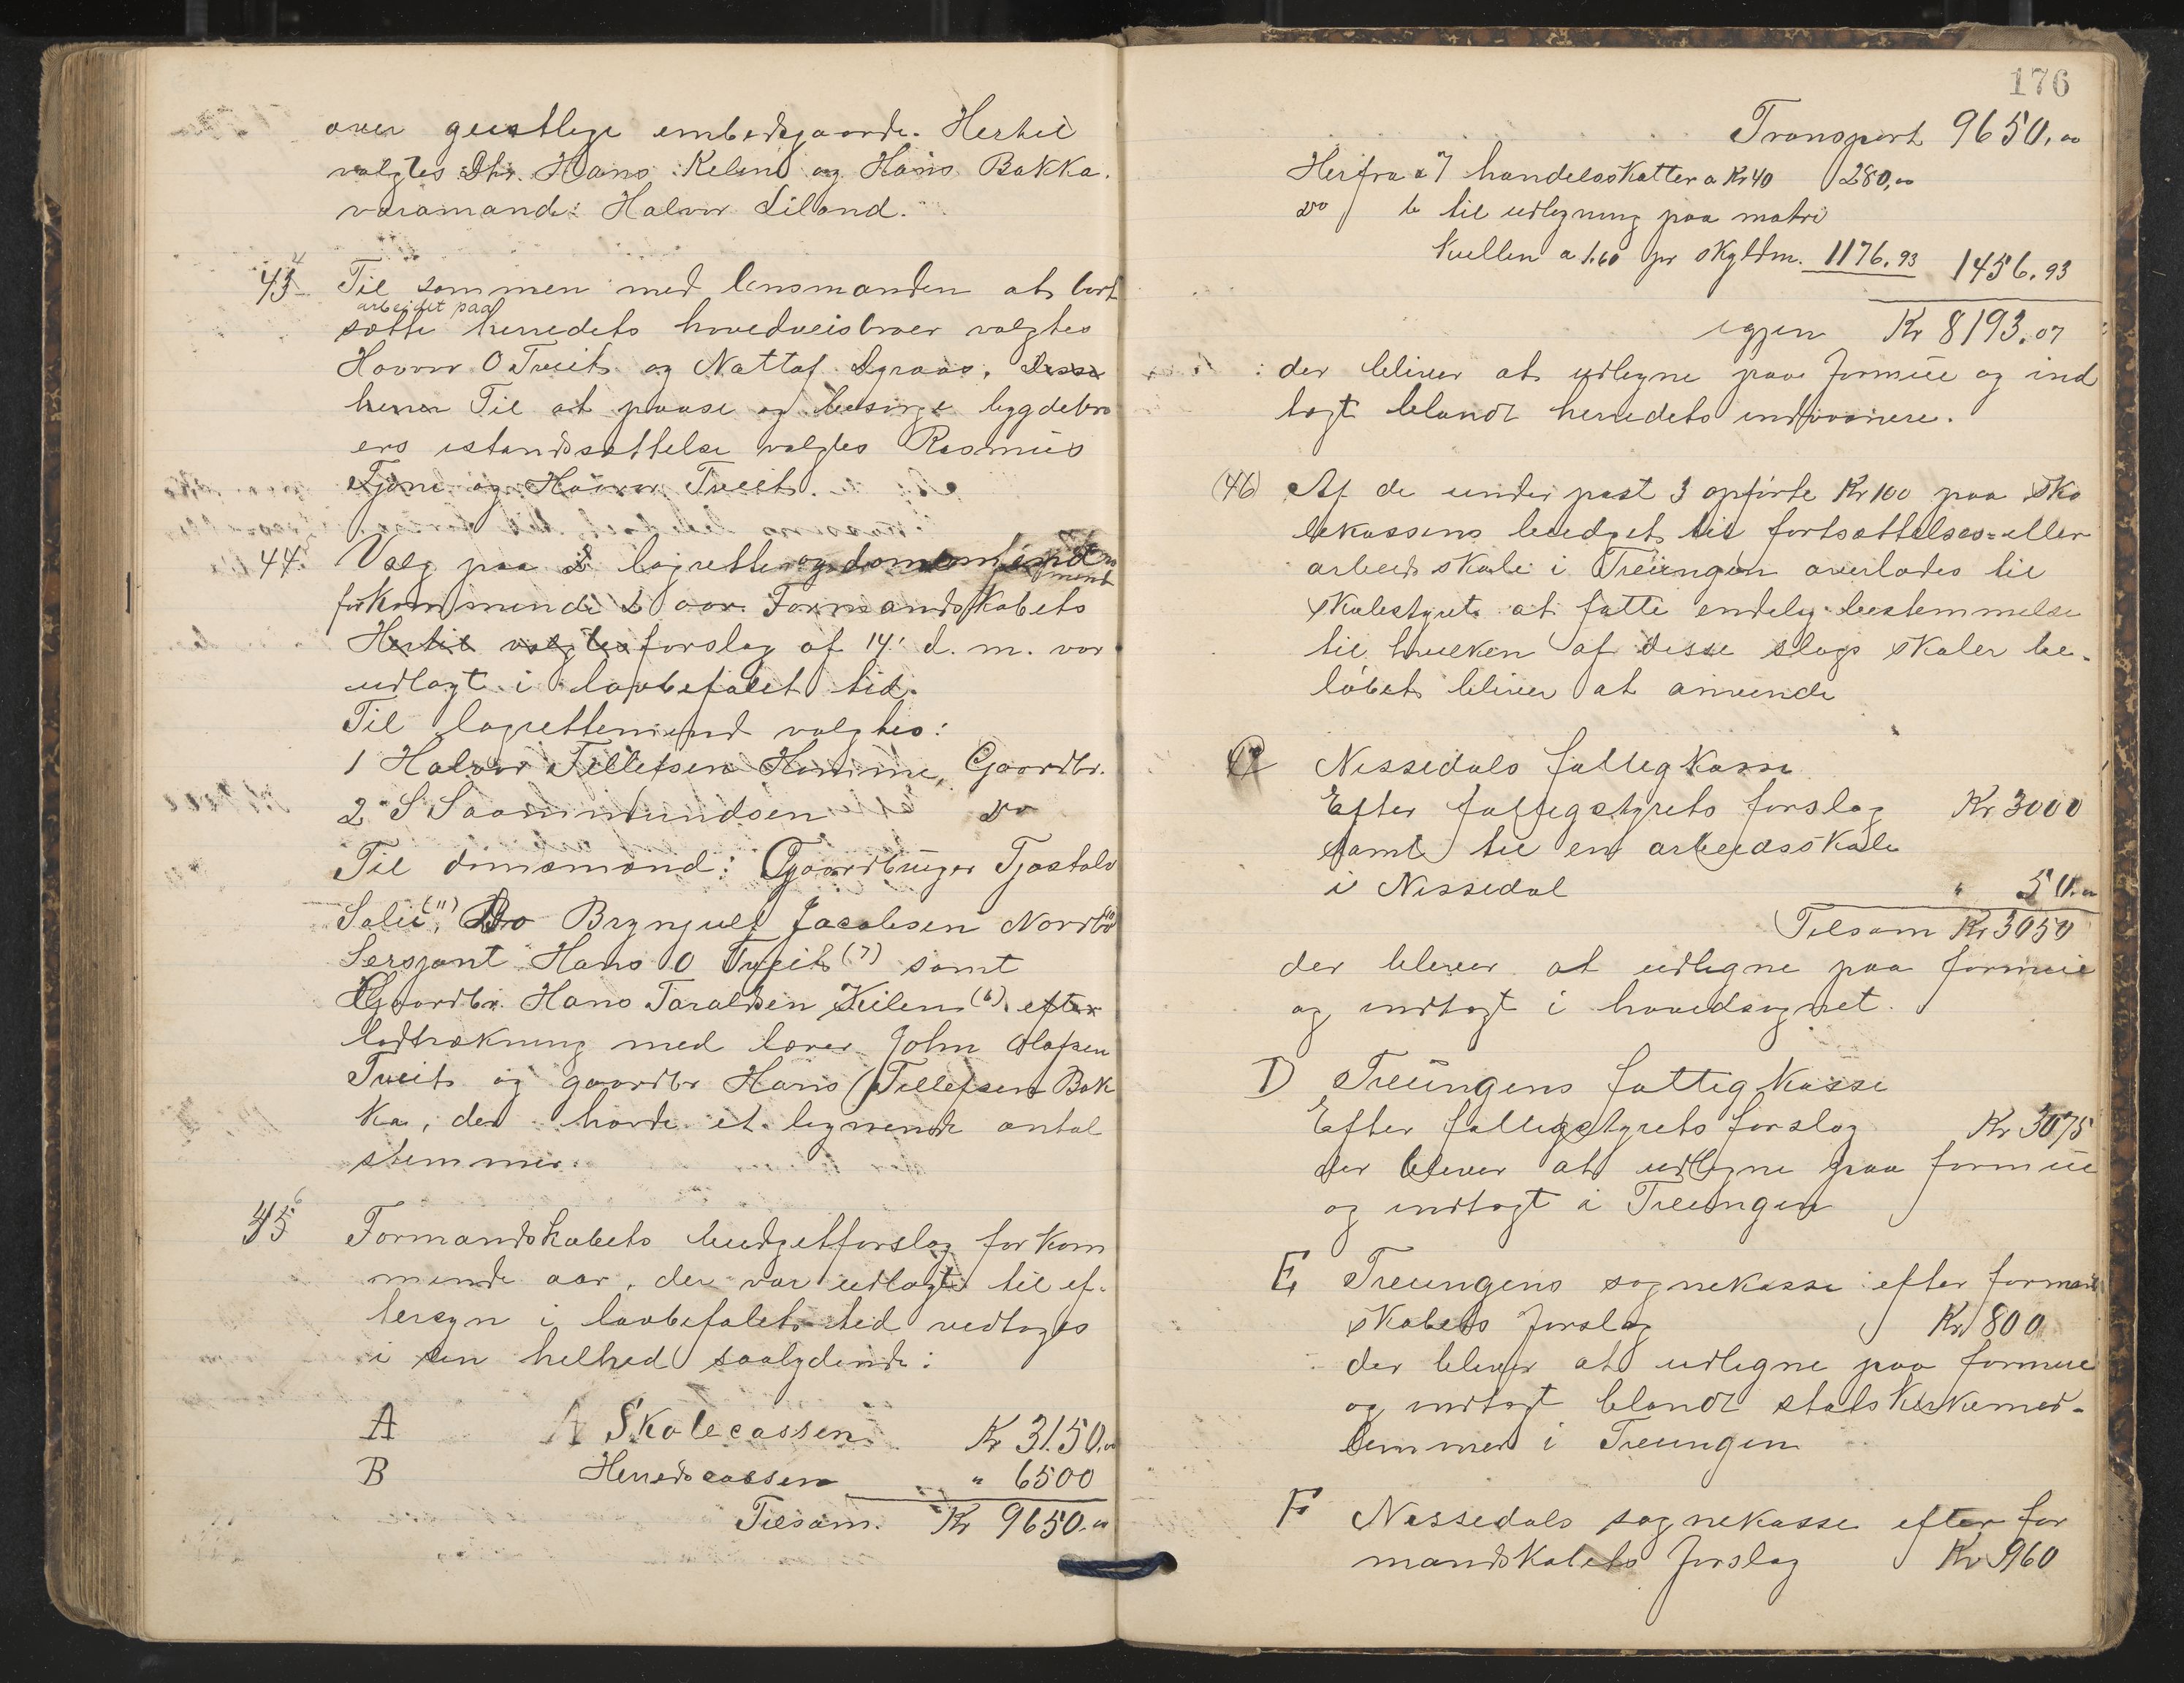 over geistlige embedsgaarde. Hertil
valgtes Dhr. Hans Kelen og Hans Bakka.
varamand: Halvor Liland.
43 4 Til sammen med lensmanden at bort
arbeidet paa
sætte herredets hovedveisbroer valgtes
Hovor O Tveit og Nottof Ygraas. Disse
herrer Til at paase og besørge bygdebro
ers istandsættelse valgtes Rasmus
Fjone og Haavor Tveit.
44 Valg paa 2 lagrette og domsmænd
for kommende 2 aar. Formandskabets
Hertil valgtes forslag af 14' d. m. var
udlagt i lovbefalet tid.
Til lagrettemænd valgtes:
1 Halvor Tellefsen Homme, Gaardbr.
2 S Saamundsen Do
Til domsmænd: Gaardbruger Tjostolv
Solli (11), Do Brynjulf Jacobsen Nordbø 10
Sersjant Hans O Tveit (7) samt
Gaardbr. Hans Taraldsen Kilen (6). efter
lodtrækning med lærer John Olafsen
Tveit og gaardbr Hans Tellefsen Bak
ka, der havde et lignende antal
stemmer.
45 6 Formandskabets budgetforslag for kom
mende aar, der var udlagt til ef-
tersyn i lovbefalet tid vedtoges
i sin helhed saalydende:
A A Skolecassen Kr 3150,00
B Herredscassen " 6500
Tilsam. Kr 9650.00
176
Transport 9650,00
Herfra a 7 handelsskatter a Kr 40 280,00
Do b til udligning paa matri
kullen a 1.60 pr skyldm. 1176.93 1456.93
igjen Kr 8193.07
der bliver at udligne paa formue og ind
tægt blandt herredets indvaanere.
(46) Af de under post 3 opførte Kr 100 paa sko
lekassens budget til fortsættelses- eller
arbeidsskole i Treungen overlades til
skolestyret at fatte endelig bestemmelse
til hvilken af disse slags skoler be-
løbet bliver at anvende
C Nissedals fattigkasse
Efter fattigstyrets forslag Kr 3000
samt til en arbeidsskole
i Nissedal " 50.00
Tilsam Kr 3050
der bliver at udligne paa formue
og indtægt i hovedsognet.
D Treungens fattigkasse
Efter fattigstyrets forslag Kr 3075
der bliver at udligne paa formue
og indtægt i Treungen
E Treungens sognekasse efter formand
skabets forslag Kr 800
der bliver at udligne paa formue
og indtægt blandt statskirkemed-
lemmer i Treungen
F Nissedals sognekasse efter for
mandskabets forslag Kr 960